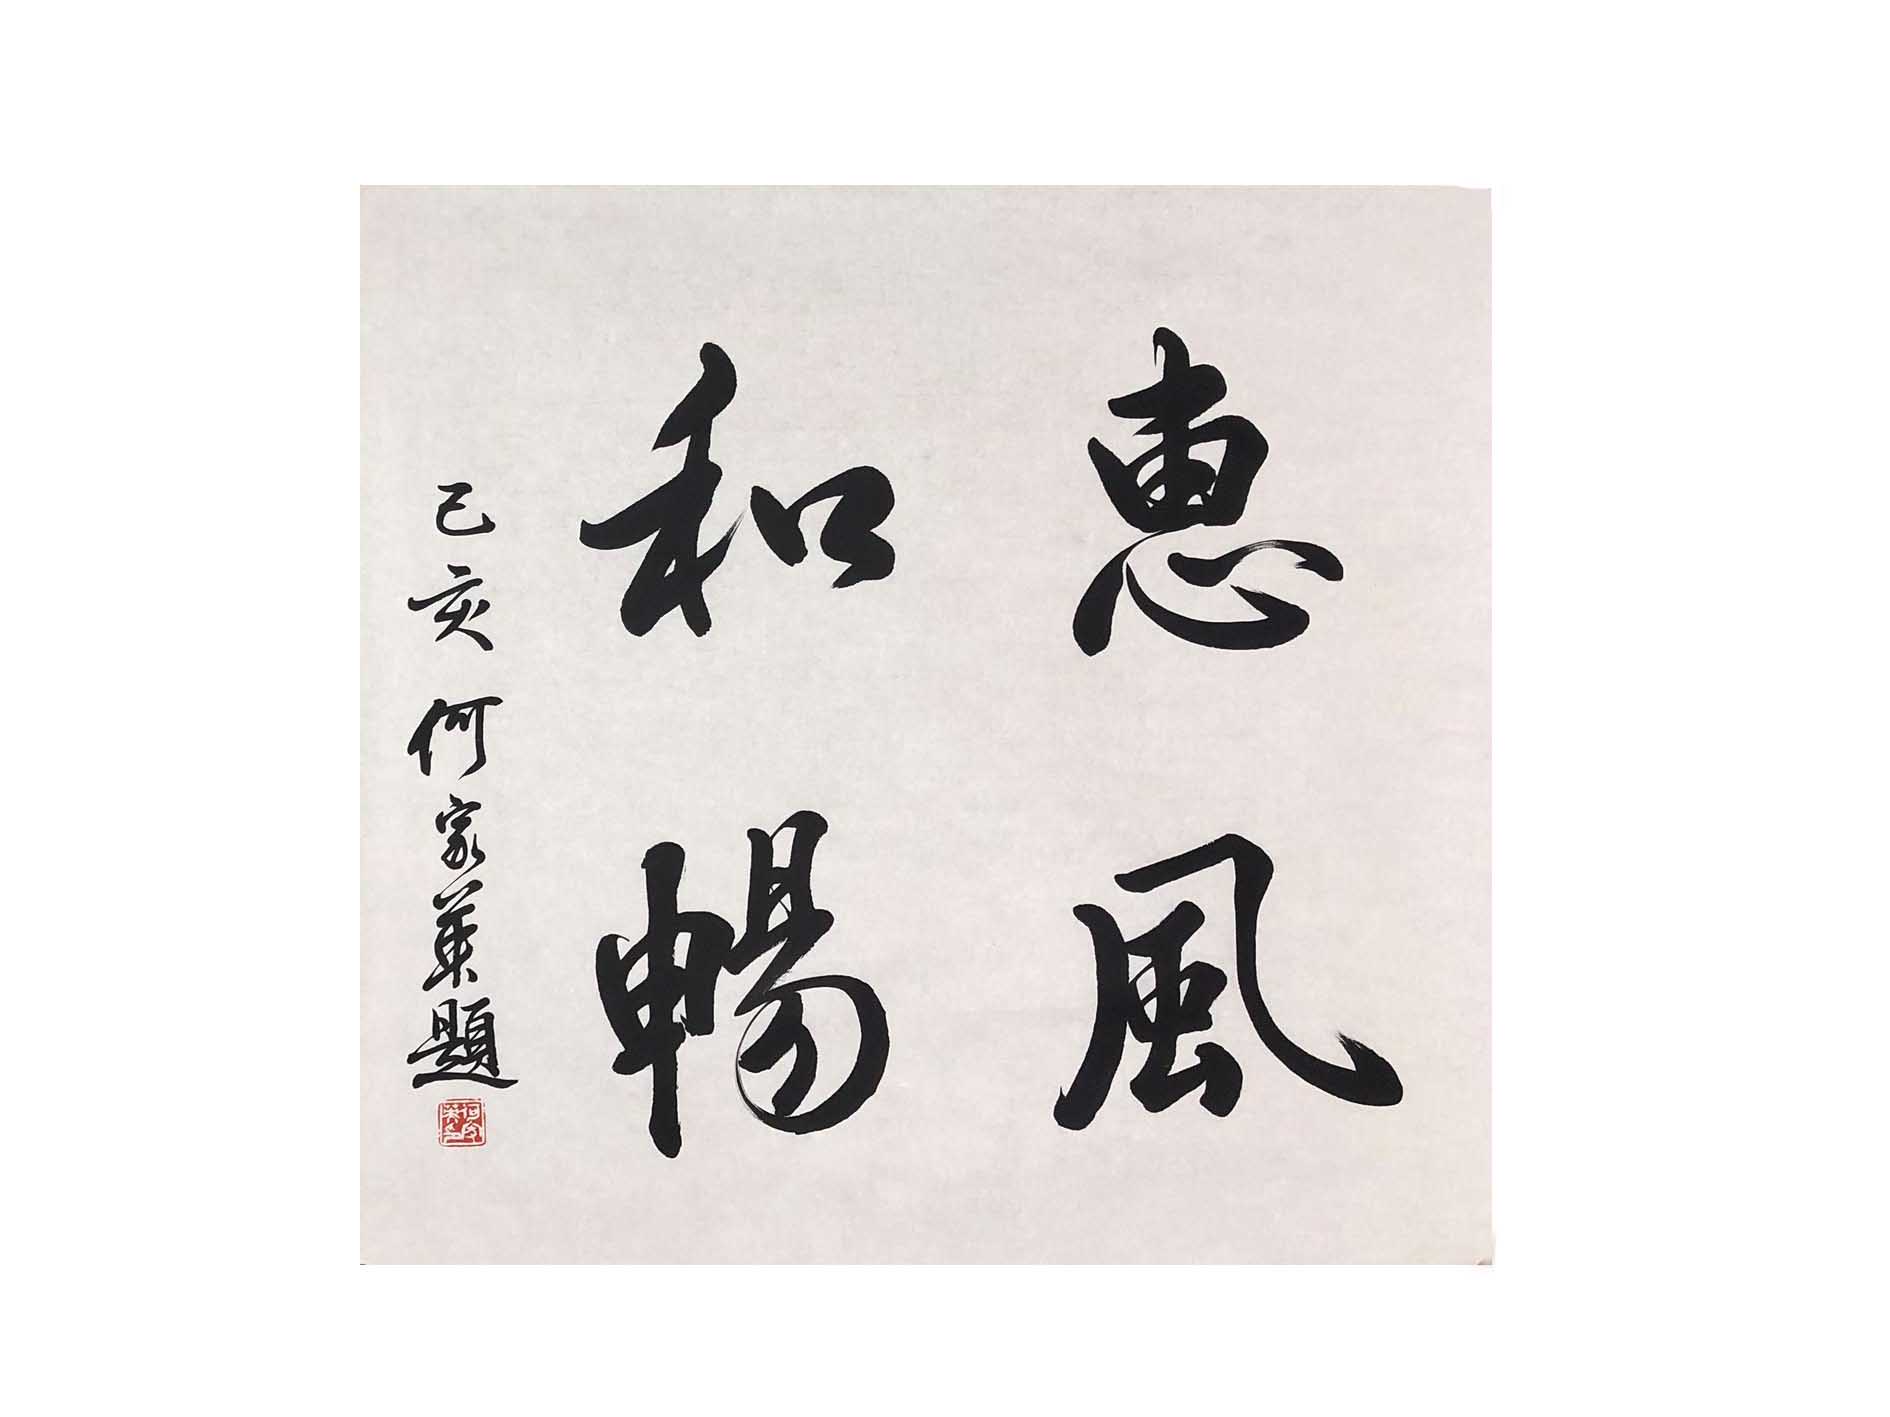 惠風
和暢
己亥 何家英題